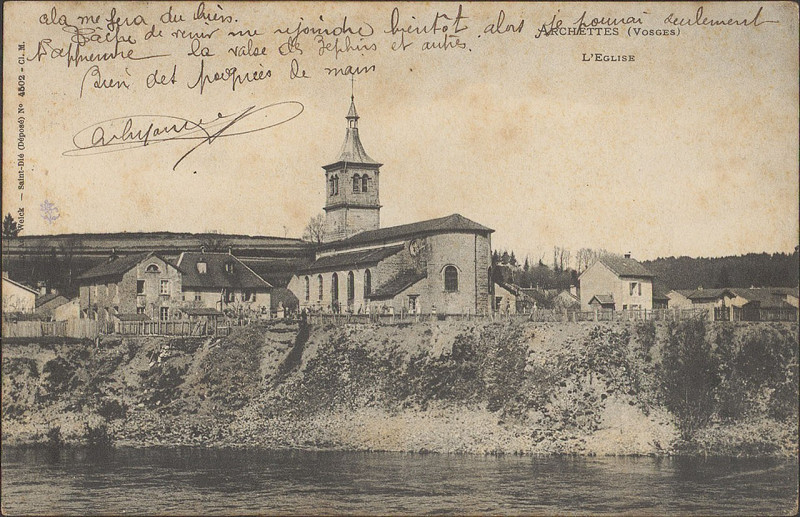 ala me fera du bien.
Tache de venir me rejoindre bientot alors je pourrai seulement
t'apprendre la valse des Zephirs et autres.
Bien des poignées de main
ARCHETTES (VOSGES)
L'EGLISE
Weick — Saint-Dié (Déposé) N° 4502 - Cl. M.